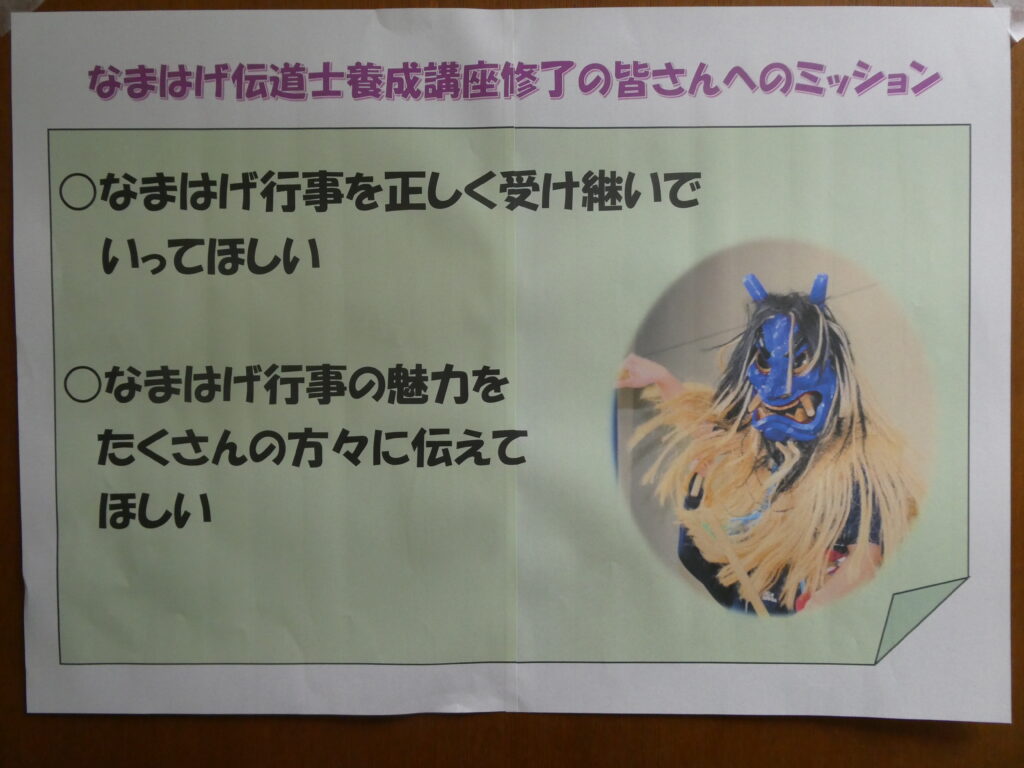 なまはげ伝道士養成講座修了の皆さんへのミッション
○なまはげ行事を正しく受け継いで
いってほしい
○なまはげ行事の魅力を
たくさんの方々に伝えて
ほしい